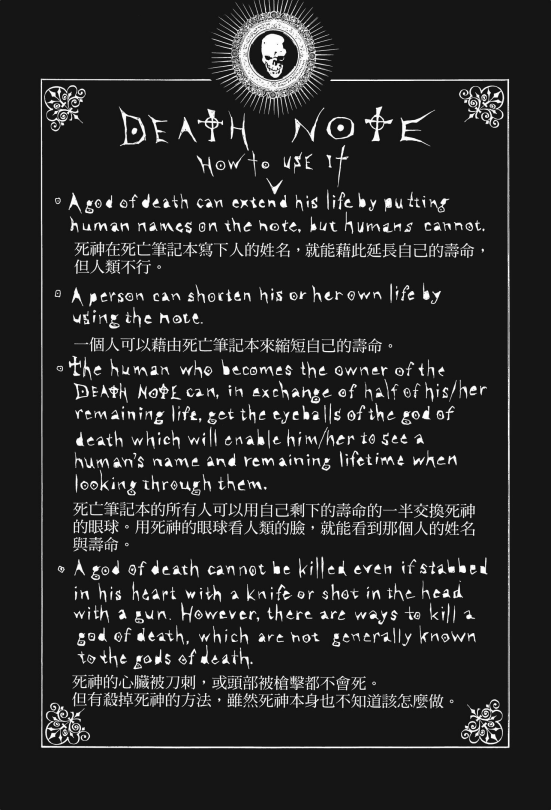 DEATH NOTE
How to use it
A god of death can extend his life by putting
human names on the note, but humans cannot.
死神在死亡筆記本寫下人的姓名，就能藉此延長自己的壽命，
但人類不行。
A person can shorten his or her own life by
using the note.
一個人可以藉由死亡筆記本來縮短自己的壽命。
The human who becomes the owner of the
DEATH NOTE can, in exchange of half of his/her
remaining life, get the eyeballs of the god of
death which will enable him/her to see a
human's name and remaining lifetime when
looking through them.
死亡筆記本的所有人可以用自己剩下的壽命的一半交換死神
的眼球。用死神的眼球看人類的臉，就能看到那個人的姓名
與壽命。
A god of death cannot be killed even if stabbed
in his heart with a knife or shot in the head
with a gun. However, there are ways to kill a
god of death, which are not generally known
to the gods of death.
死神的心臟被刀刺，或頭部被槍擊都不會死。
但有殺掉死神的方法，雖然死神本身也不知道該怎麼做。